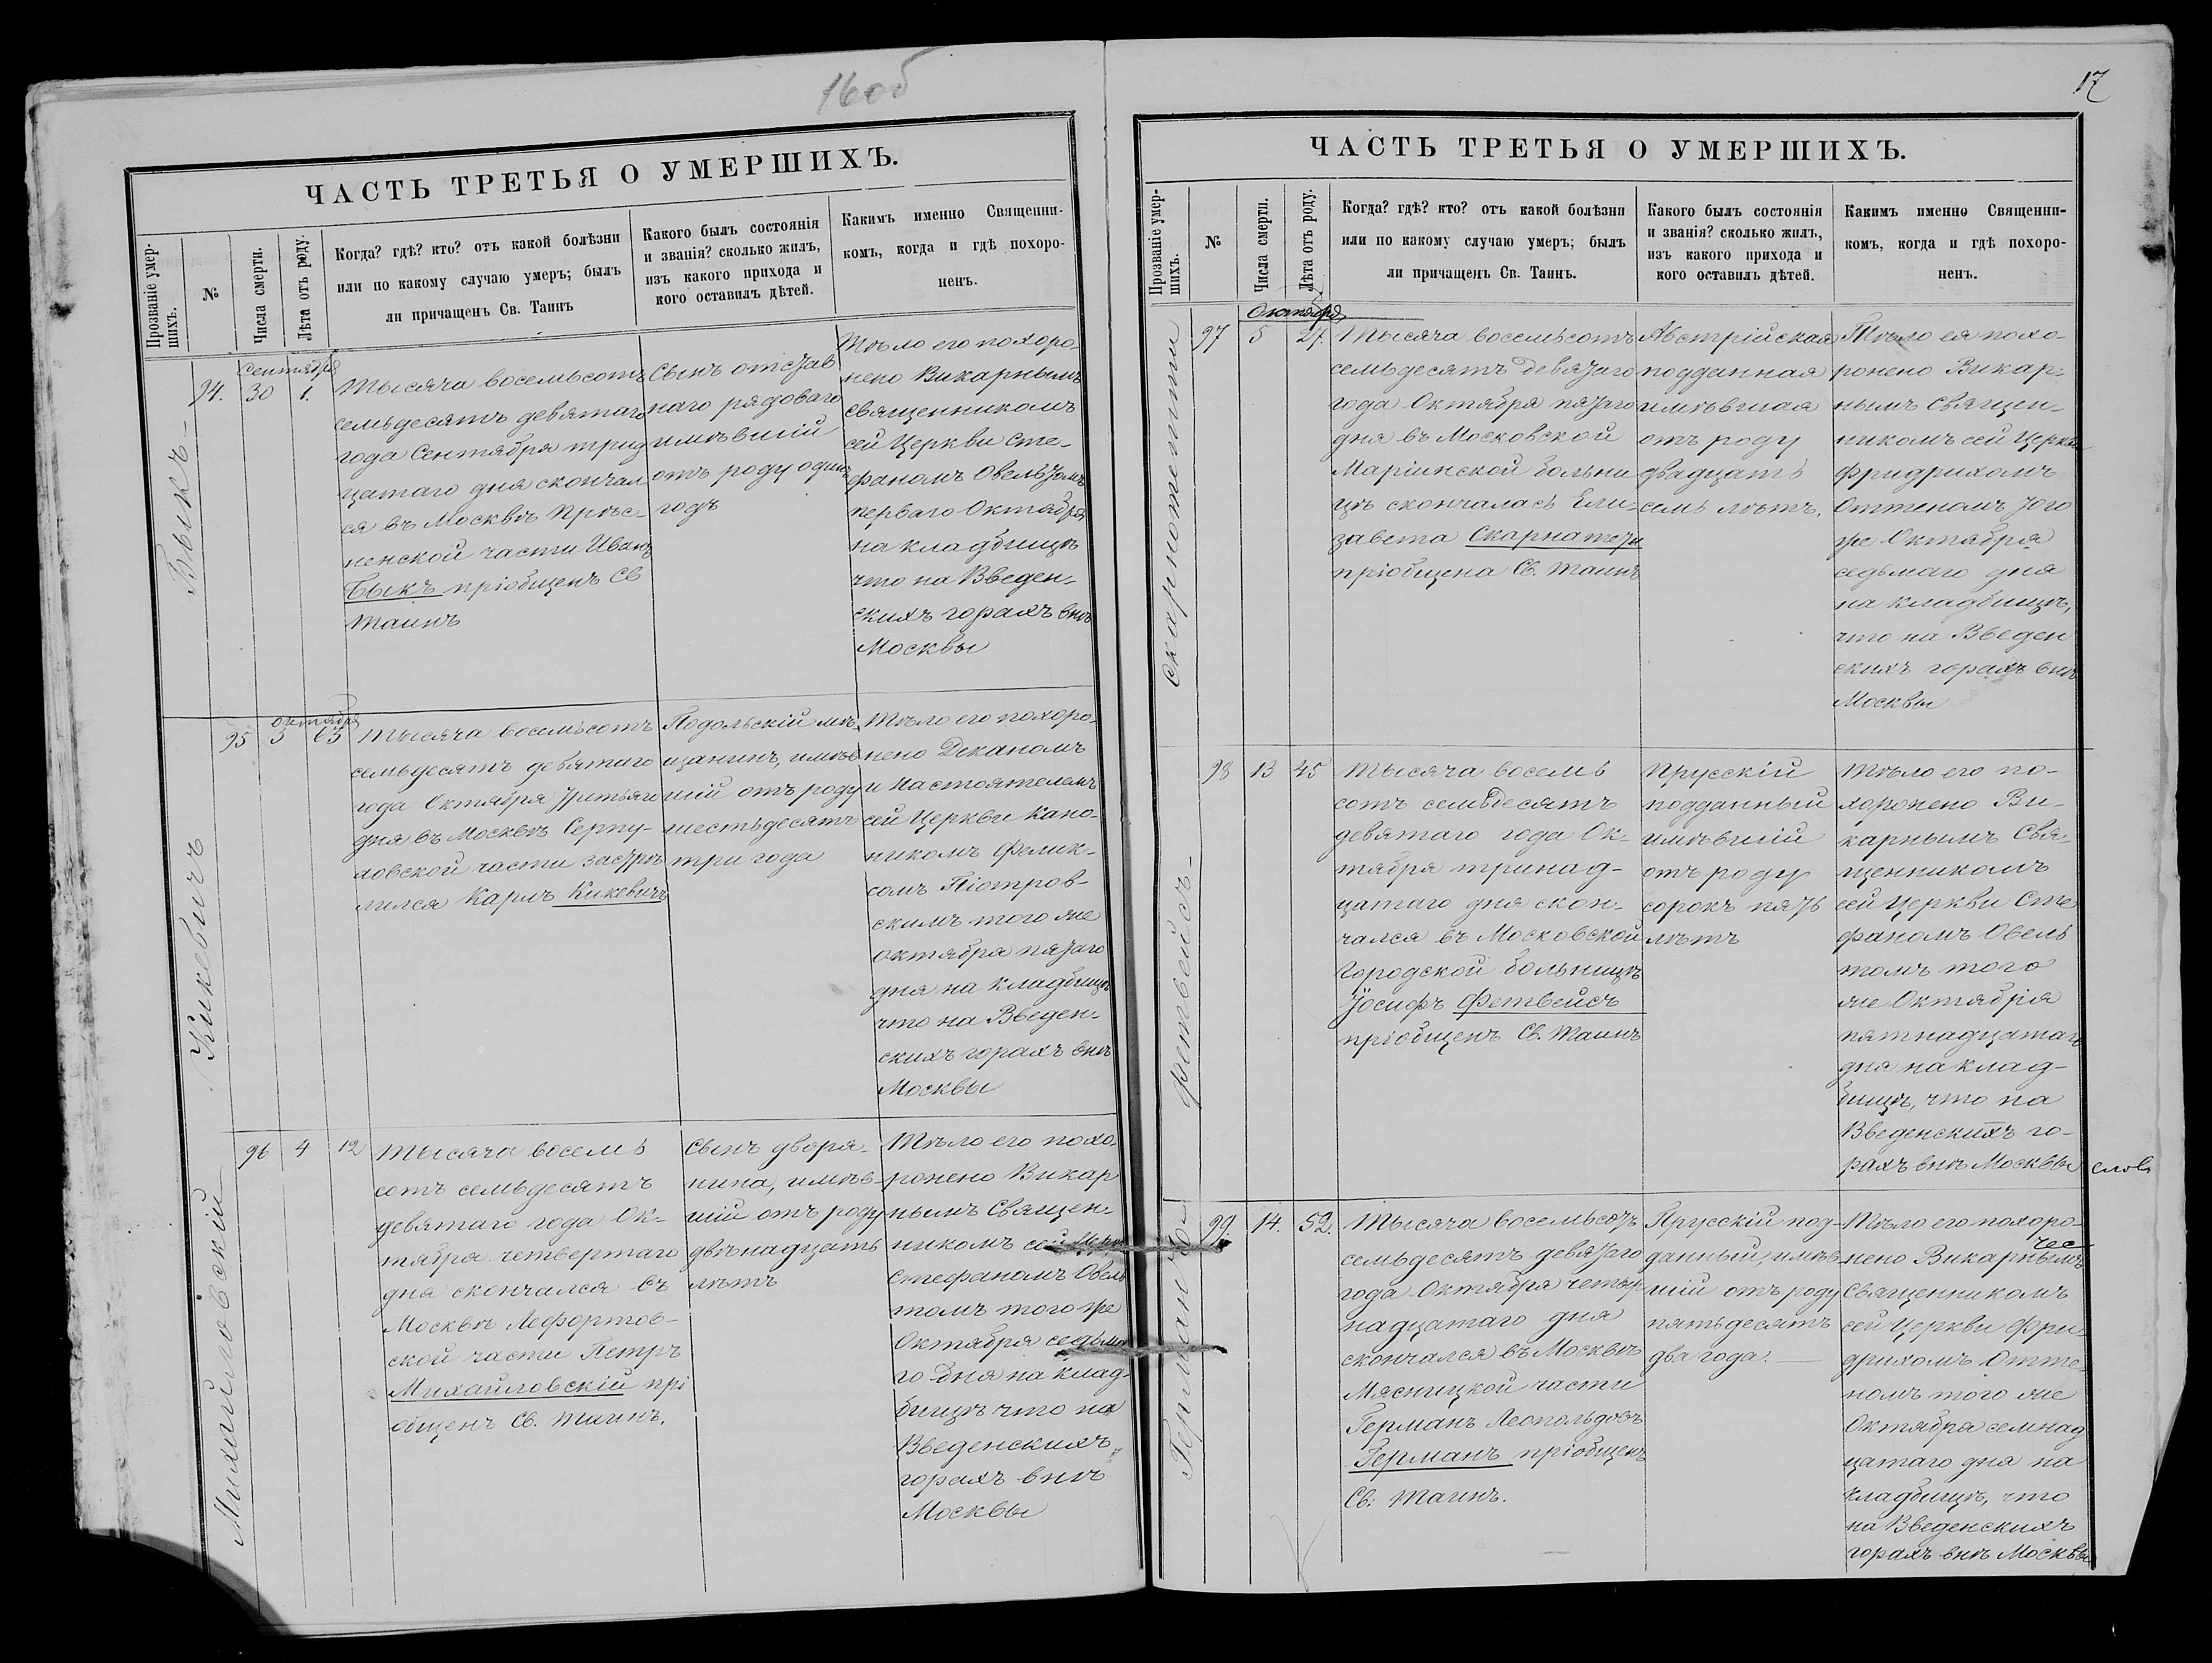 16об
ЧАСТЬ ТРЕТЬЯ О УМЕРШИХЪ.
Прозваніе умер-
шихъ.
№
Числа смерти.
Лѣта отъ роду.
Когда? гдѣ? кто? отъ какой болѣзни
или по какому случаю умеръ; былъ
ли причащенъ Св. Таинъ
Какого былъ состоянія
и званія? сколько жилъ,
изъ какого прихода и
кого оставилъ дѣтей.
Какимъ именно Священни-
комъ, когда и гдѣ похоро-
ненъ.
Быкъ
94.
Сентября
30
1.
Тысяча восемьсотъ
семьдесятъ девятаго
года Сентября трид
цатаго дня скончал
ся въ Москвѣ Прѣс-
ненской части Иванъ
Быкъ пріобщенъ Св
Таинъ
Сынъ отстав
наго рядоваго
имѣвшій
отъ роду одинъ
годъ
Тѣло его похоро-
нено Викарнымъ
священникомъ
сей Церкви Сте-
фаномъ Овельтомъ
перваго Октября
на кладбищѣ
что на Введен-
скихъ горахъ внѣ
Москвы
Кикевичъ
95
Октября
3
63
Тысяча восемьсотъ
семьдесятъ девятаго
года Октября третьяго
дня въ Москвѣ Серпу-
ховской части застрѣ
лился Карлъ Кикевичъ
Подольскій мѣ-
щанинъ, имѣв
шій отъ роду
шестьдесятъ
три года
Тѣло его похоро-
нено Деканомъ
и Настоятелемъ
сей Церкви Кано-
никомъ Фелик-
сомъ Піотров-
скимъ того же
октября пятаго
дня на кладбищѣ
что на Введен-
скихъ горахъ внѣ
Москвы
Михайловскій
96
4
12
Тысяча восемь
сотъ семьдесятъ
девятаго года Ок-
тября четвертаго
дня скончался въ
Москвѣ Лефортов-
ской части Петръ
Михайловскій прі
общенъ Св. Таинъ.
Сынъ дворя-
нина, имѣв-
шій отъ роду
двѣнадцать
лѣтъ
Тѣло его похо-
ронено Викар
нымъ Священ-
никомъ сей
Стефаномъ Овель
томъ того же
Октября седьма
го дня на клад-
бищѣ что на
Введенскихъ
горахъ внѣ
Москвы
17
ЧАСТЬ ТРЕТЬЯ О УМЕРШИХЪ.
Прозваніе умер-
шихъ.
№
Числа смерти.
Лѣта отъ роду.
Когда? гдѣ? кто? отъ какой болѣзни
или по какому случаю умеръ; былъ
ли причащенъ Св. Таинъ.
Какого былъ состоянія
и званія? сколько жилъ,
изъ какого прихода и
кого оставилъ дѣтей.
Какимъ именно Священни-
комъ, когда и гдѣ похоро-
ненъ.
97
Октября
5
27.
Тысяча восемьсотъ
семьдесятъ девятаго
года Октября пятаго
дня въ Московской
Маріинской больни
цѣ скончалась Ели-
завета Скарпатети
пріобщена Св. Таинъ
Австрійская
подданная
имѣвшая
отъ роду
двадцать
семь лѣтъ.
Тѣло ея похо-
ронено Викар-
нымъ Священ-
никомъ сей Церкви
Фридрихомъ
Оттеномъ того
же Октября
седьмаго дня
на кладбищѣ,
что на Введен
скихъ горахъ внѣ
Москвы
Фетвейсъ
98
13
45
Тысяча восемь
сотъ семьдесятъ
девятаго года Ок-
тября тринад-
цатаго дня скон-
чался въ Московской
Городской больницѣ
Іосифъ Фетвейсъ
пріобщенъ Св. Таинъ
Прусскій
подданный
имѣвшій
отъ роду
сорокъ пять
лѣтъ
Тѣло его по-
хоронено Ви-
карнымъ Свя-
щенникомъ
сей Церкви Сте
фаномъ Овель
томъ того
же Октября
пятнадцатаго
дня на клад-
бищѣ, что на
Введенскихъ го-
рахъ внѣ Москвы
Германъ
99.
14.
52.
Тысяча восемьсотъ
семьдесятъ девятаго
года Октября четыр
надцатаго дня
скончался въ Москвѣ
Мясницкой части
Германъ Леопольдовъ
Германъ пріобщенъ
Св. Таинъ.
Прусскій под-
данный, имѣв-
шій отъ роду
пятьдесятъ
два года.
Тѣло его похоро-
нено Викарнымъ
Священникомъ
сей Церкви Фри-
дрихомъ Отте-
номъ того же
Октября семнад
цатаго дня на
кладбищѣ, что
на Введенскихъ
горахъ внѣ Москвы